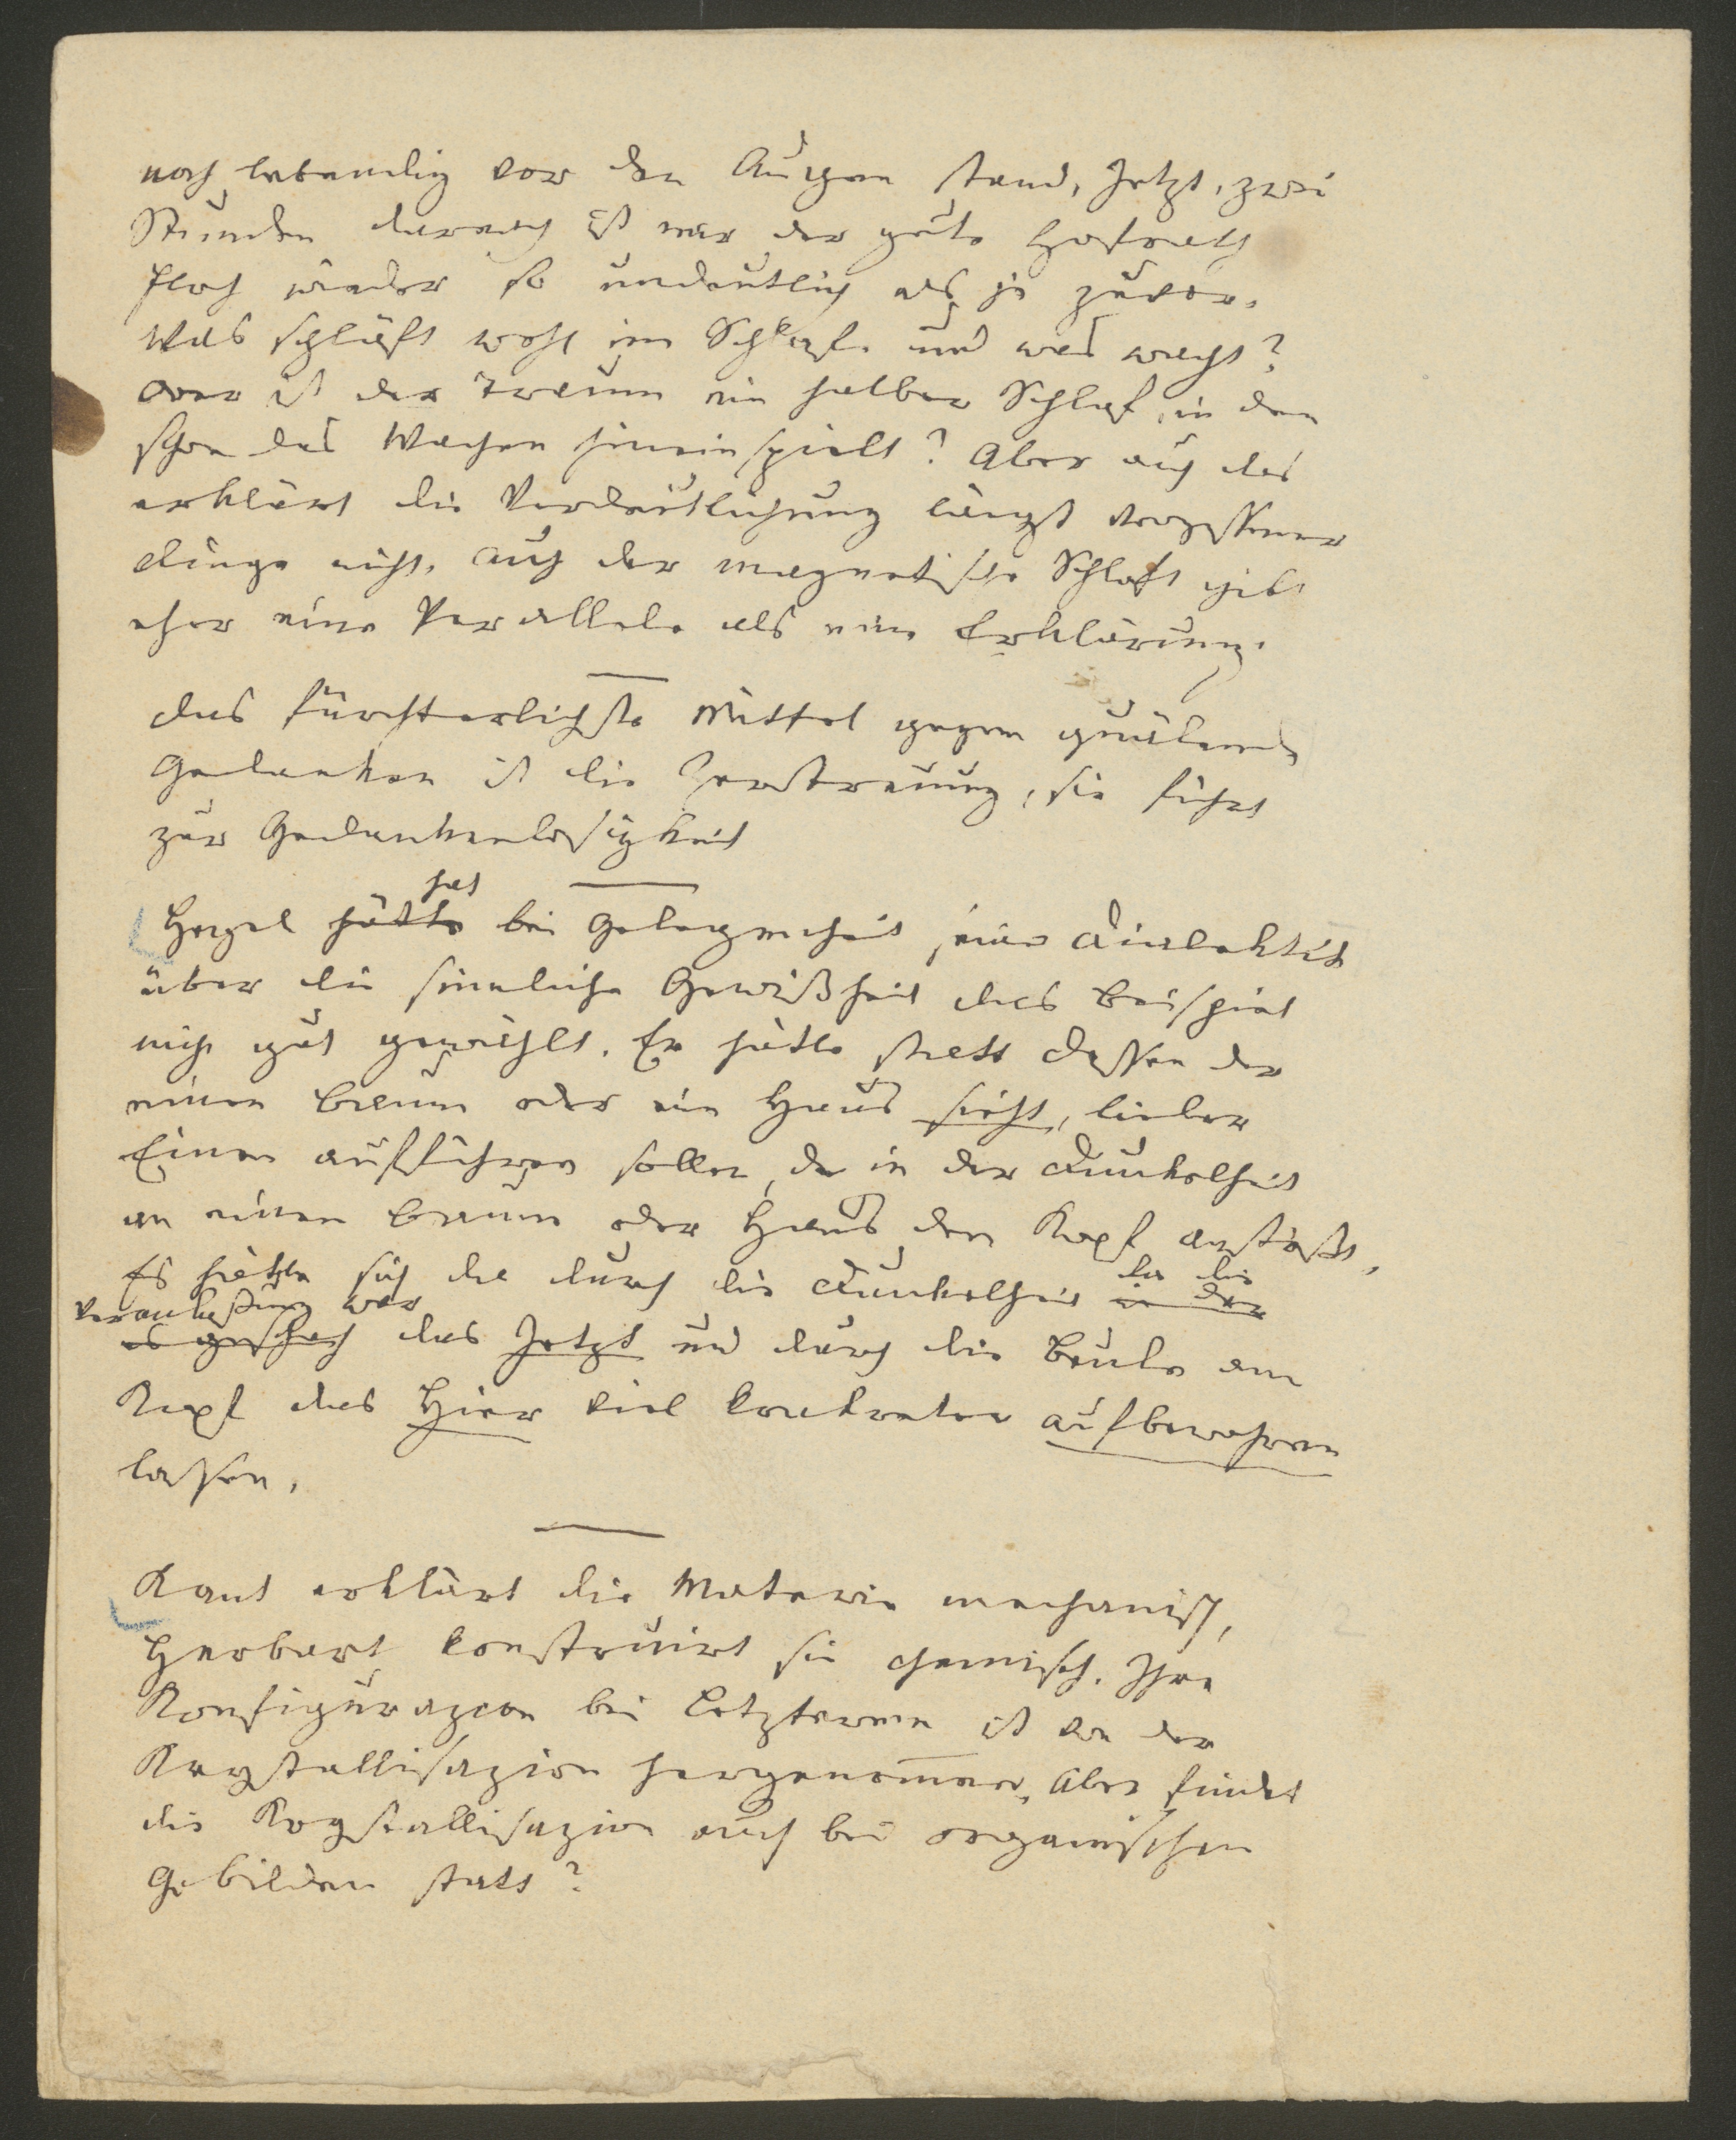 noch lebendig vor den Augen stand, Jetzt, zwei
Stunden darnach ist mir der gute Hofrath
Floch wieder so undeutlich als je zuvor.
Was schläft wohl im Schlaf und was wacht?
Oder ist der Traum ein halber Schlaf, in den
schon das Wachen hineinspielt? Aber auch das
erklärt die Verdeutlichung längst vergessener
Dinge nicht. Auch der magnetische Schlaf gibt
eher eine Parallele als eine Erklärung.
Das fürchterlichste Mittel gegen quälende
Gedanken ist die Zerstreuung, sie führt
zur Gedankenlosigkeit
hat
Hegel hätte bei Gelegenheit seiner Dialektik
über die sinnliche Gewißheit das Beispiel
nicht gut gewählt. Er hätte statt dessen der
einen Baum oder ein Haus sieht, lieber
Einen aufführen sollen, der in der Dunkelheit
an einen Baum oder Haus den Kopf anstößt,
Es hätte sich da durch die Dunkelheit in der
die die
Veranlassung war
es geschah das Jetzt und durch die Beule am
Kopf das Hier viel konkreter aufbewahren
lassen.
Kant erklärt die Materie mechanisch,
Herbart konstruirt sie chemisch. Ihre
Konfigurazion bei Letzterem ist von der
Krystallisazion hergenommen. Aber findet
die Krystallisazion auch bei organischen
Gebilden statt?